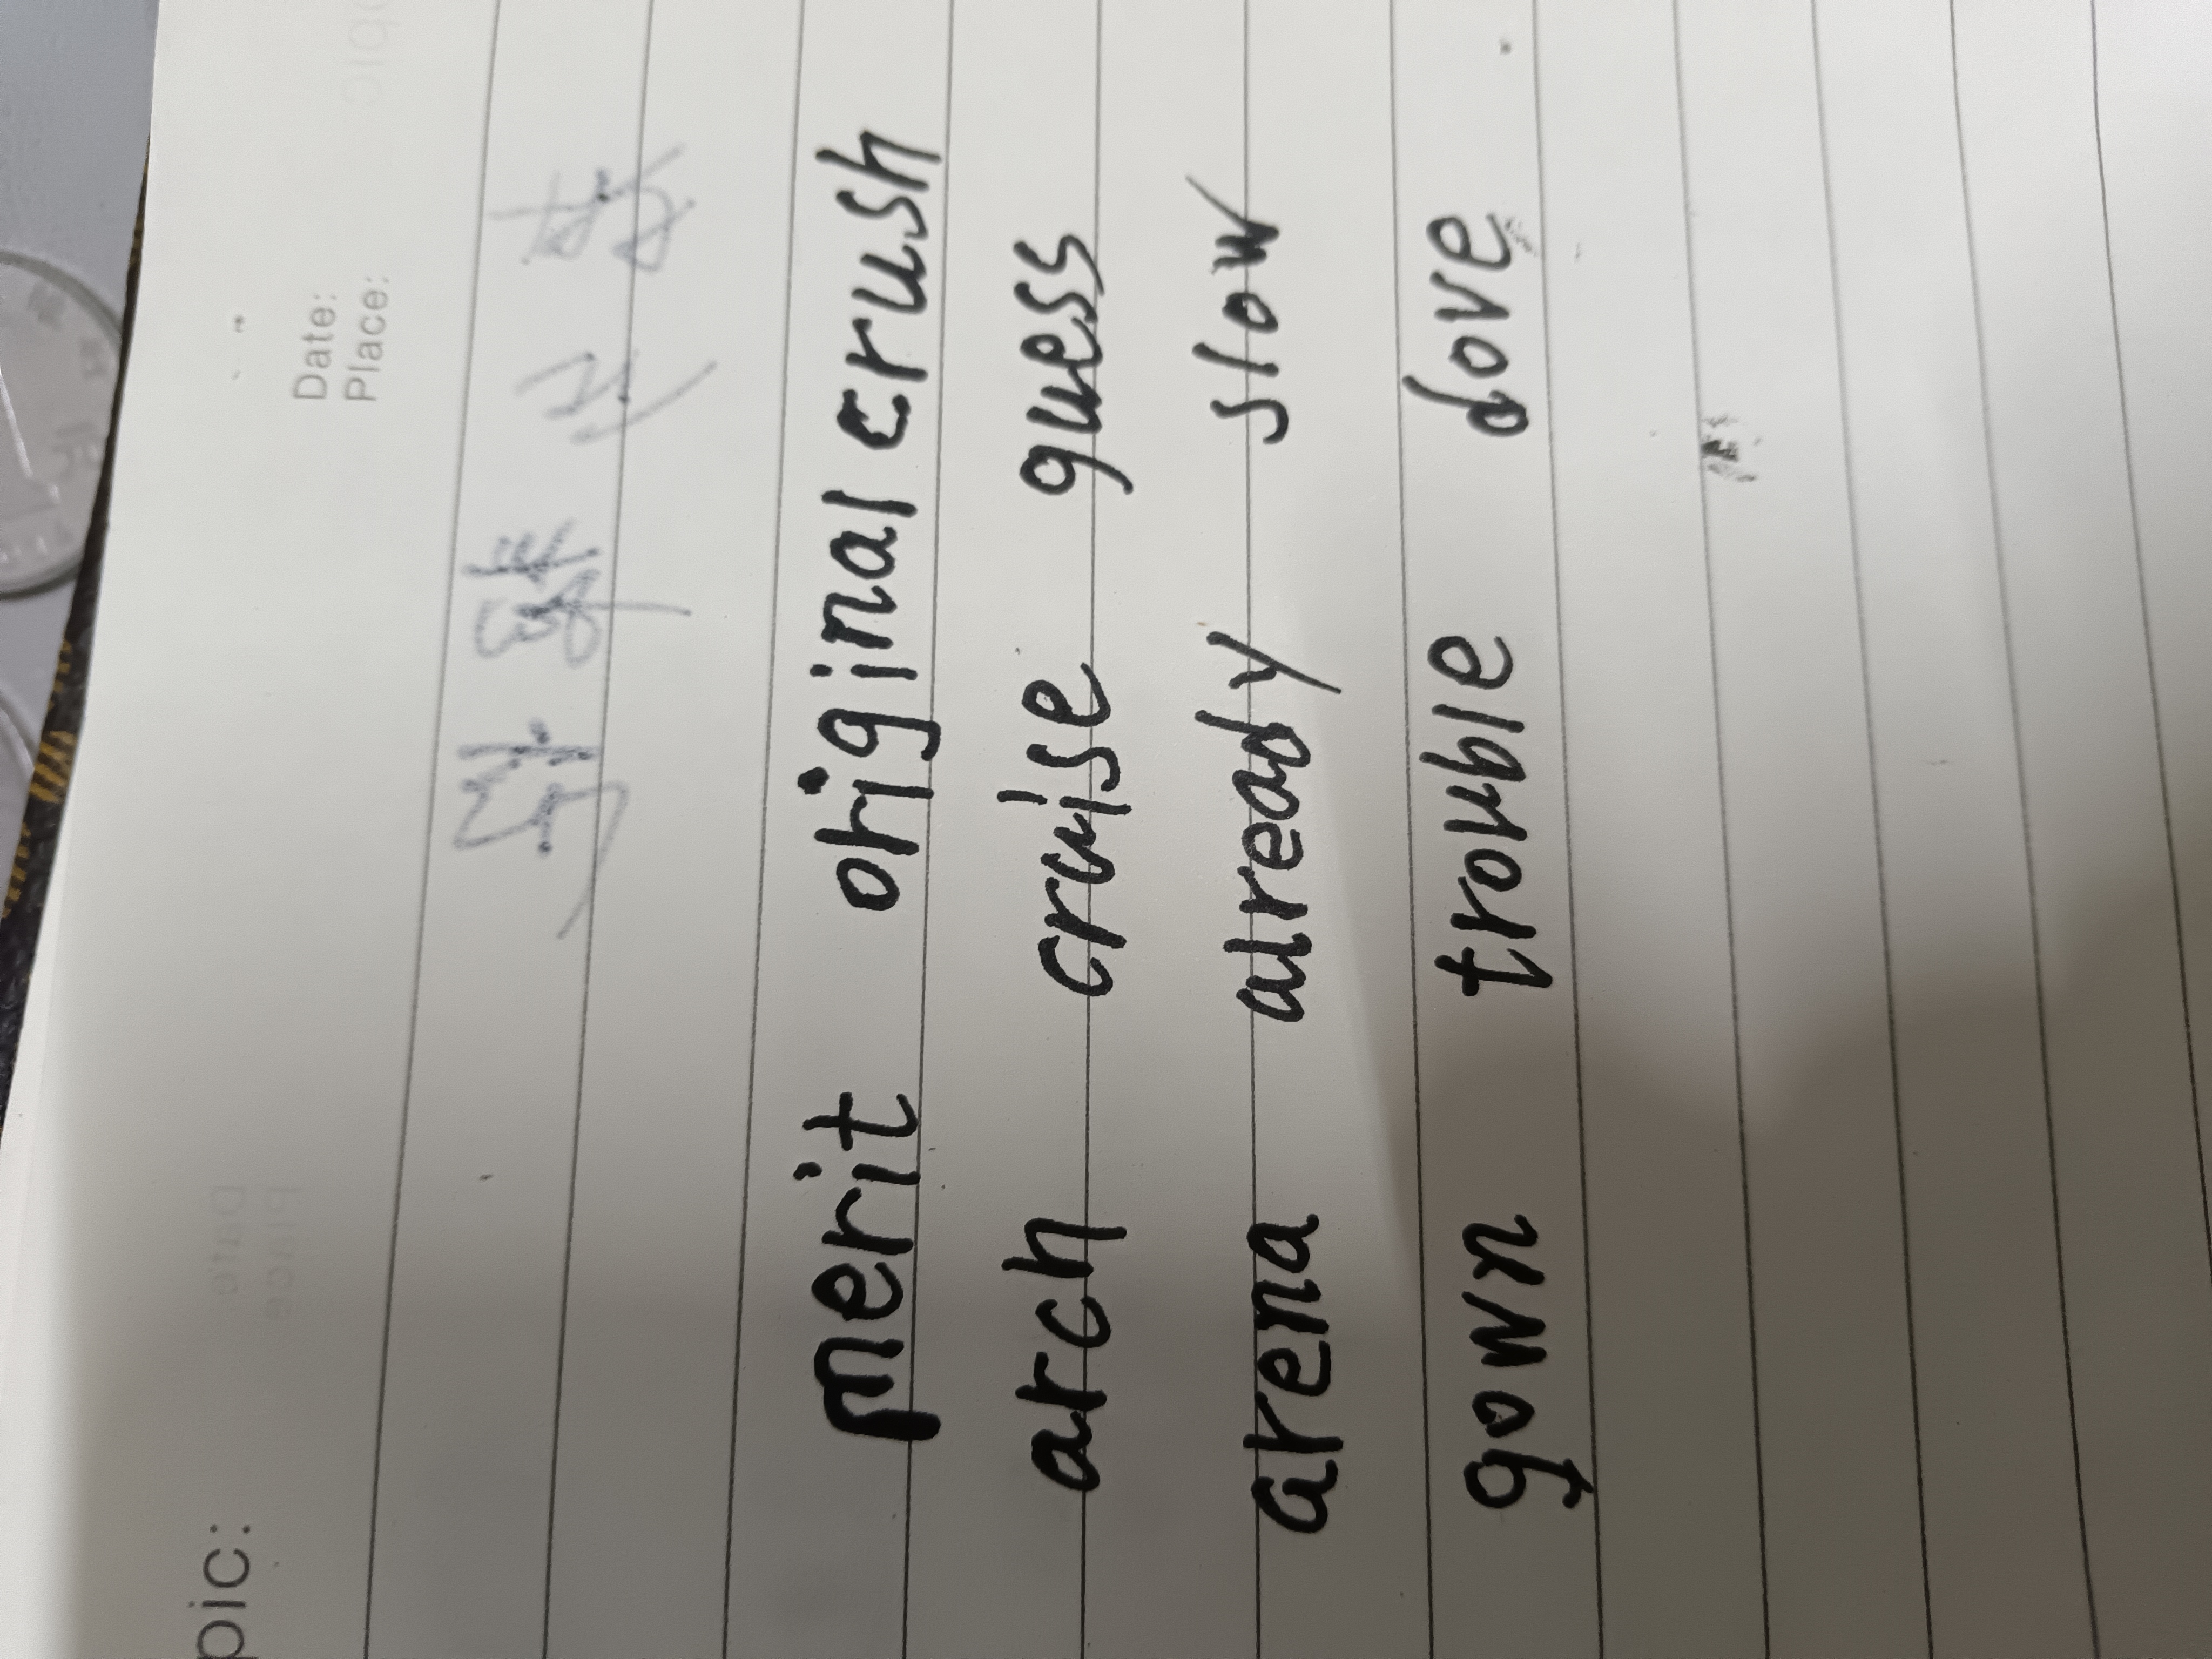 pic:
Date:
Place:
merit original crush
arch cruise guess
arena already slow
gown trouble dove